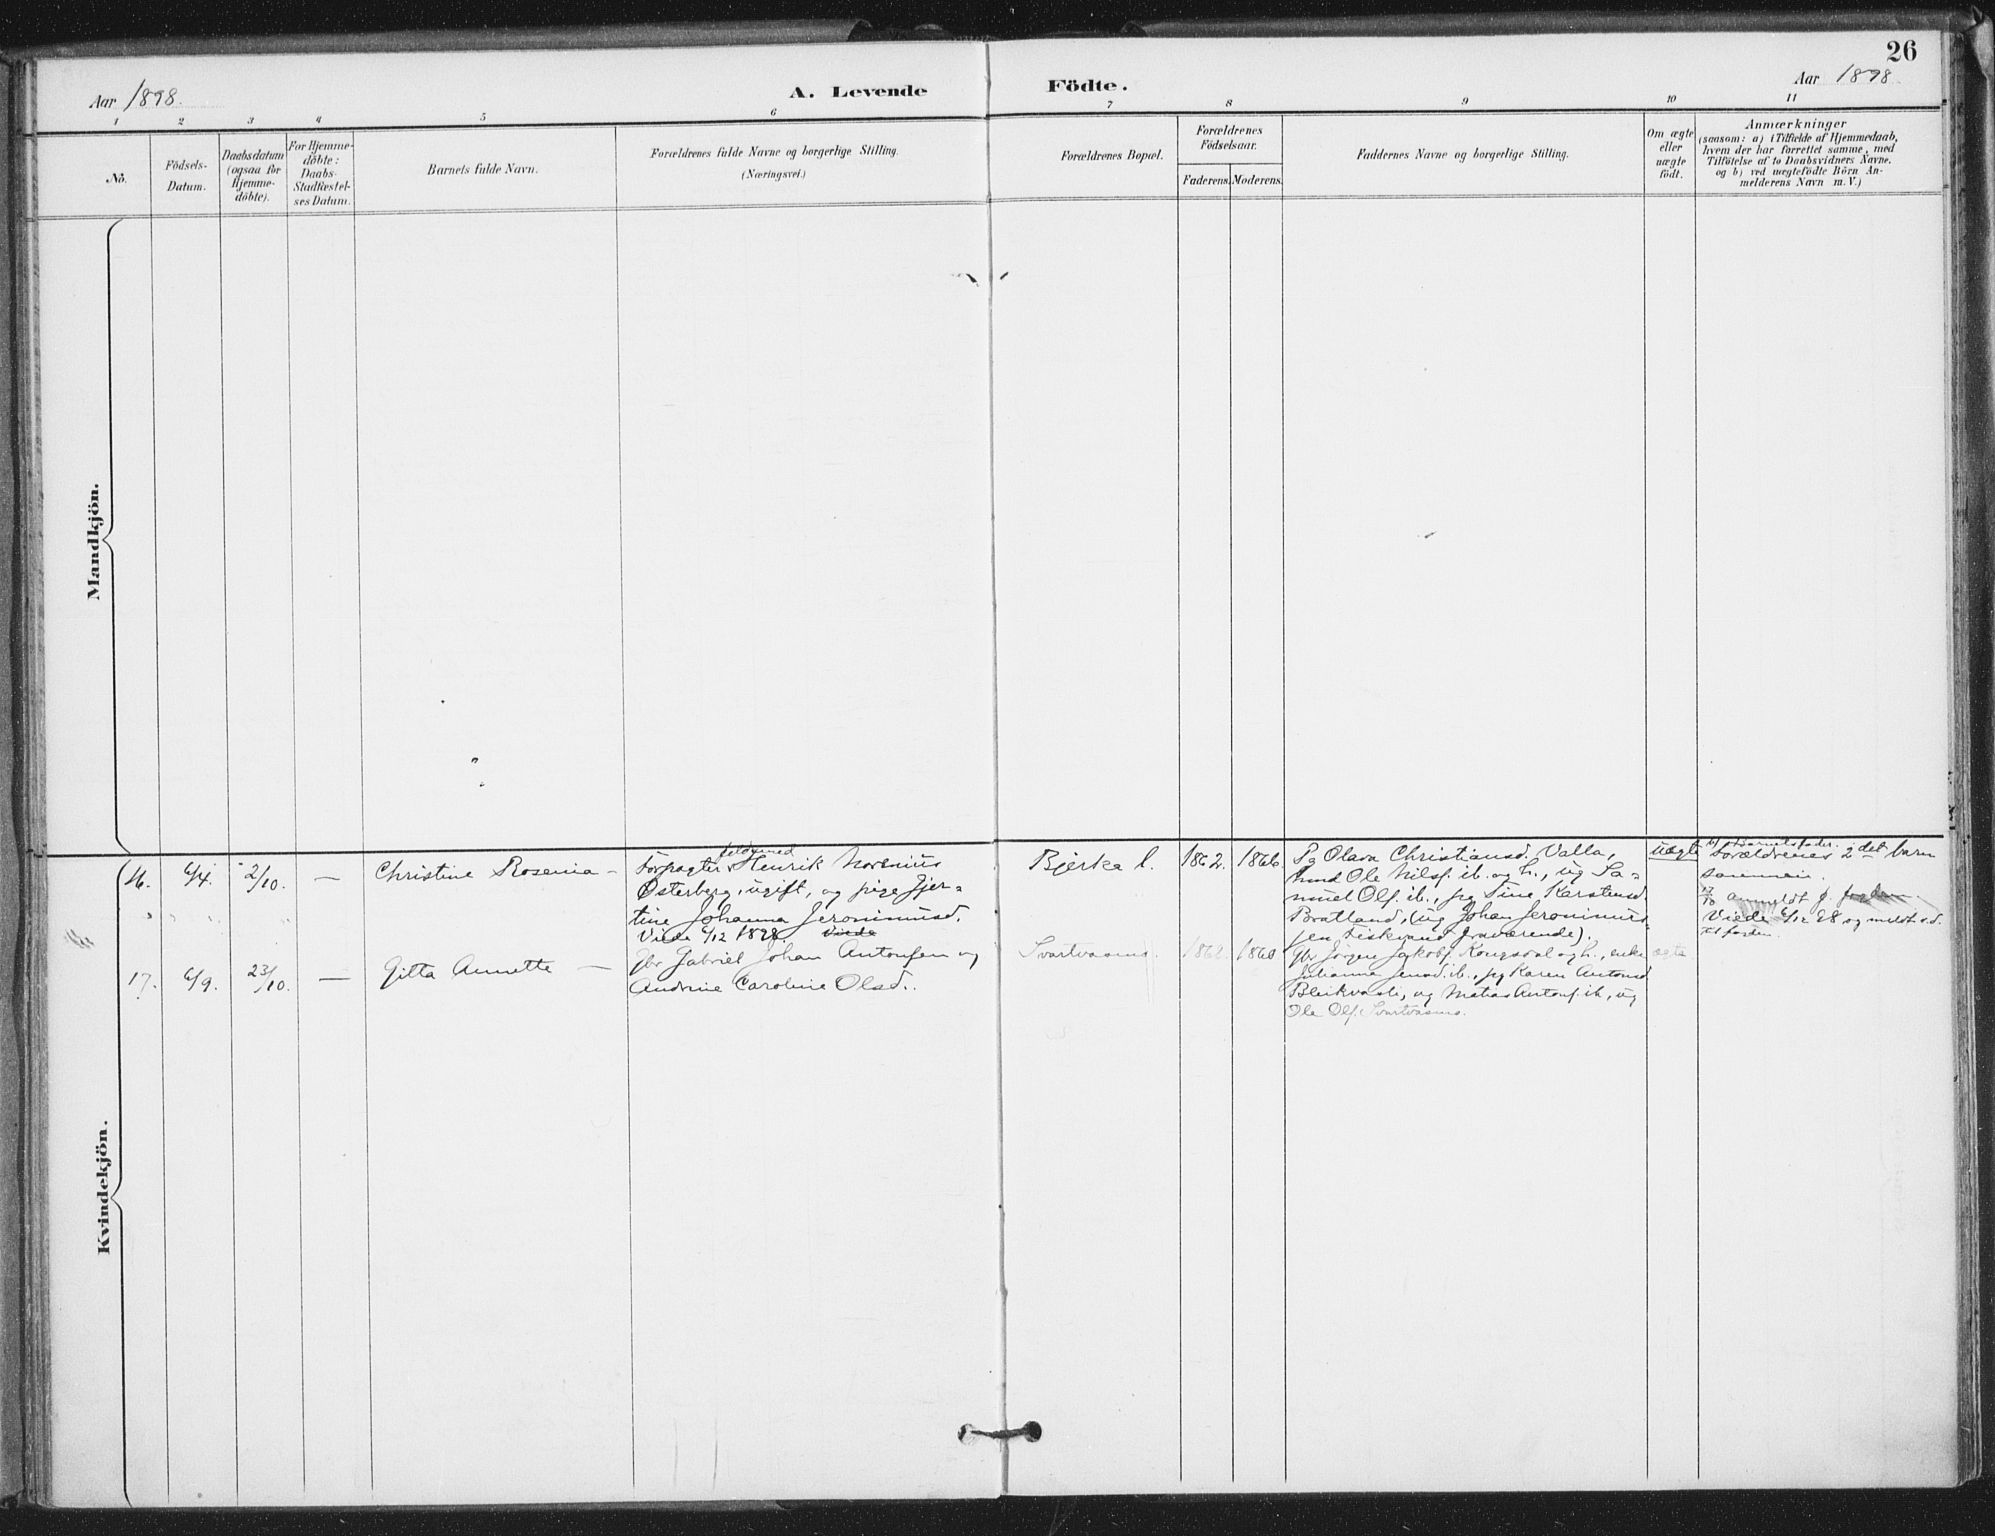 26
Aar 1898.
A. Levende
Födte.
Aar 1898.
1 2 3 4 5 6 7 8 9 10 11
No.
Födsels-
Datum.
Daabsdatum
(ogsaa for
Hjemme-
döbte).
For Hjemme-
döbte:
Daabs-
Stadfæstel-
ses Datum.
Barnets fulde Navn.
Forældrenes fulde Navne og borgerlige Stilling.
(Næringsvei.)
Forældrenes Bopæl.
Forældrenes
Födselsaar.
Faderens. Moderens.
Faddernes Navne og borgerlige Stilling.
Om ægte
eller
uægte
födt.
Anmærkninger
(saasom: a) i Tilfælde af Hjemmedaab,
hvem der har forrettet samme, med
Tilföielse af to Daabsvidners Navne.
og b) ved uægtefödte Börn An-
melderens Navn m. V.)
Mandkjön.
Kvindekjön.
16.
6/4.
2/10.
—
Christine Rosenia —
Forpagter Henrik Norenius
Østerberg, ugift, og pige Fjer-
tine Johanna Jeronimusd.
Viede 6/12 1898 Viede
Bjerka l.
1862.
1866
Pg Olava Christiansd. Valla,
hmd Ole Nilsf. ib. og h., ug Sa-
muel Olf. ib., pg Tine Karstensd.
Bratland, (ug Johan Jeronimus-
sen fraværende).
uægte
Forældrenes 2det barn
sammen.
17/10 anmeldt f.
Viede 6/12 98 og meldt s.d.
til
17.
6/9.
23/10.
—
Gitta Annette —
Gbr Gabriel Johan Antonsen og
Andrine Caroline Olsd.
Svartvasms.
1862.
1860
Gbr Jørgen Jakobf. Kongsdal og h., enke
Julianna Jensd. ib., pg Karen Antonsd
Bleikvasli, ug Matias Antonf. ib., ug
Ole Olf. Svartvasms.
ægte